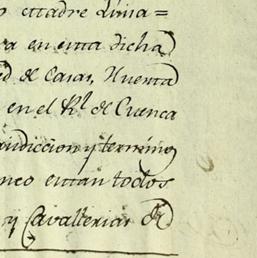 o Madre Luisa=
va en esta dicha
ed de Casas, Huerta
en el Rl. de Cuenca
jurisdiccion y termino
neo estan todos
y Cavallerias de